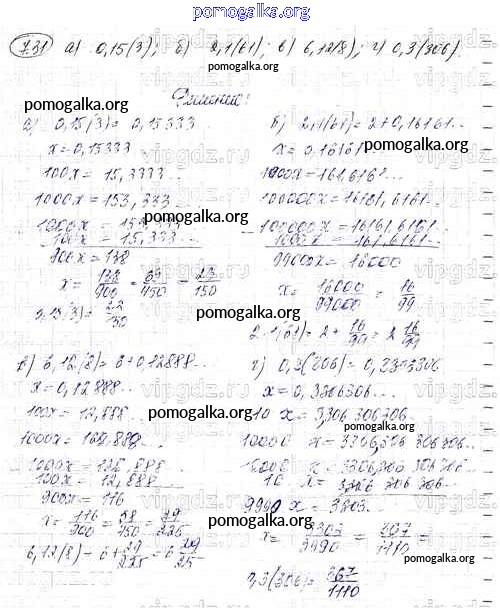 pomogalka.org
7.31 а) 0,15(3); б) 2,1(61); в) 6,12(8); г) 0,3(306).
pomogalka.org
Решение:
pomogalka.org
а) 0,15(3) = 0,15333
x = 0,15333...
100x = 15,3333...
1000x = 153,333...
1000x = 153,333...
100x = 15,333...
900x = 138
x = 138/900 = 69/450 = 23/150
б) 2,1(61) = 2 + 0,16161...
pomogalka.org
x = 0,16161...
1000x = 161,6161...
100000x = 16161,6161...
pomogalka.org
- 100000x = 16161,6161...
1000x = 161,6161...
99000x = 16000
x = 16000/99000 = 16/99
2,1(61) = 2 + 16/99 = 2 16/99
в) 6,12(8) = 6 + 0,12888...
x = 0,12888...
100x = 12,888...
1000x = 128,888...
1000x = 128,888
100x = 12,888...
900x = 116
x = 116/900 = 58/450 = 29/225
6,12(8) = 6 + 29/225 = 6 29/225
г) 0,3(306) = 0,3306306
x = 0,3306306...
pomogalka.org
10 x = 3,306 306 306...
10000 x = 3306,306 306 306...
pomogalka.org
10000 x = 3306,306 306 306...
10 x = 3,306 306 306...
9990 x = 3303.
pomogalka.org
x = 3303/9990 = 367/1110 =
pomogalka.org
0,3(306) = 367/1110